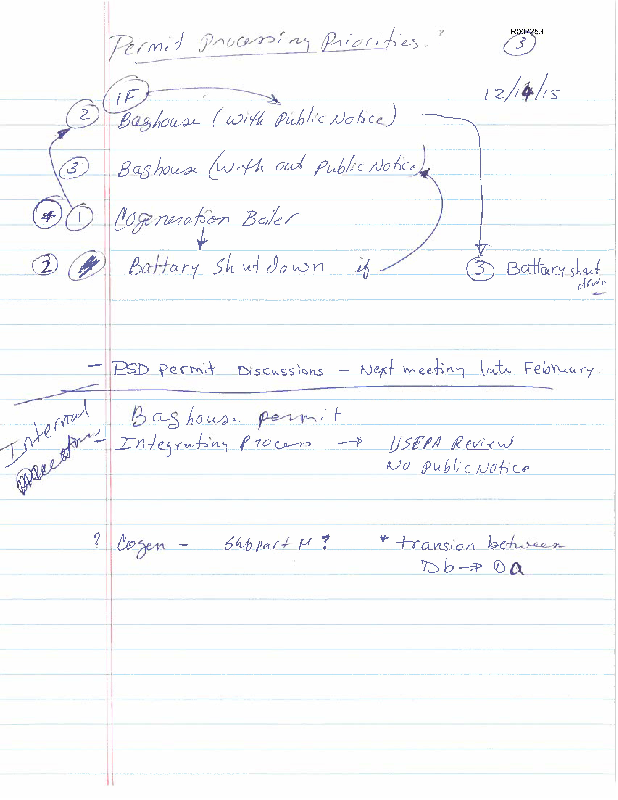 Permit Processing Priorities?
3
12/14/15
IF
2 Baghouse (with Public Notice)
3 Baghouse (with out Public Notice)
1 Cogeneration Boiler
2 Battary Shut down if
3 Battary shut
down
- PSD Permit Discussions - Next meeting late February
Internal
Baghouse permit
Integrating Process → USEPA Review
No Public Notice
? Cogen - Subpart M? * transion between
Db → Da